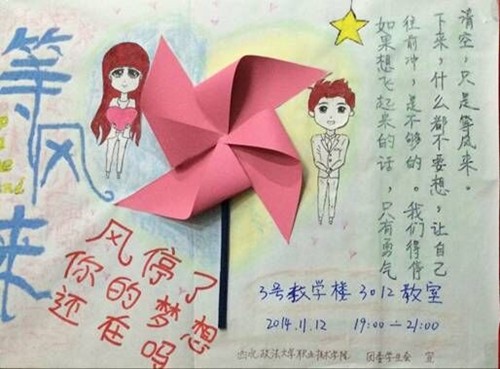 等风来
如果想飞起来的话，只有勇气
往前冲，是不够的。我们得停
下来，什么都不要想，让自己
清空，只是等风来。
风停了
你的梦想
还在吗
3号教学楼 3012教室
2014.11.12 19:00—21:00
西北政法大学职业技术学院 团委学生会 宣